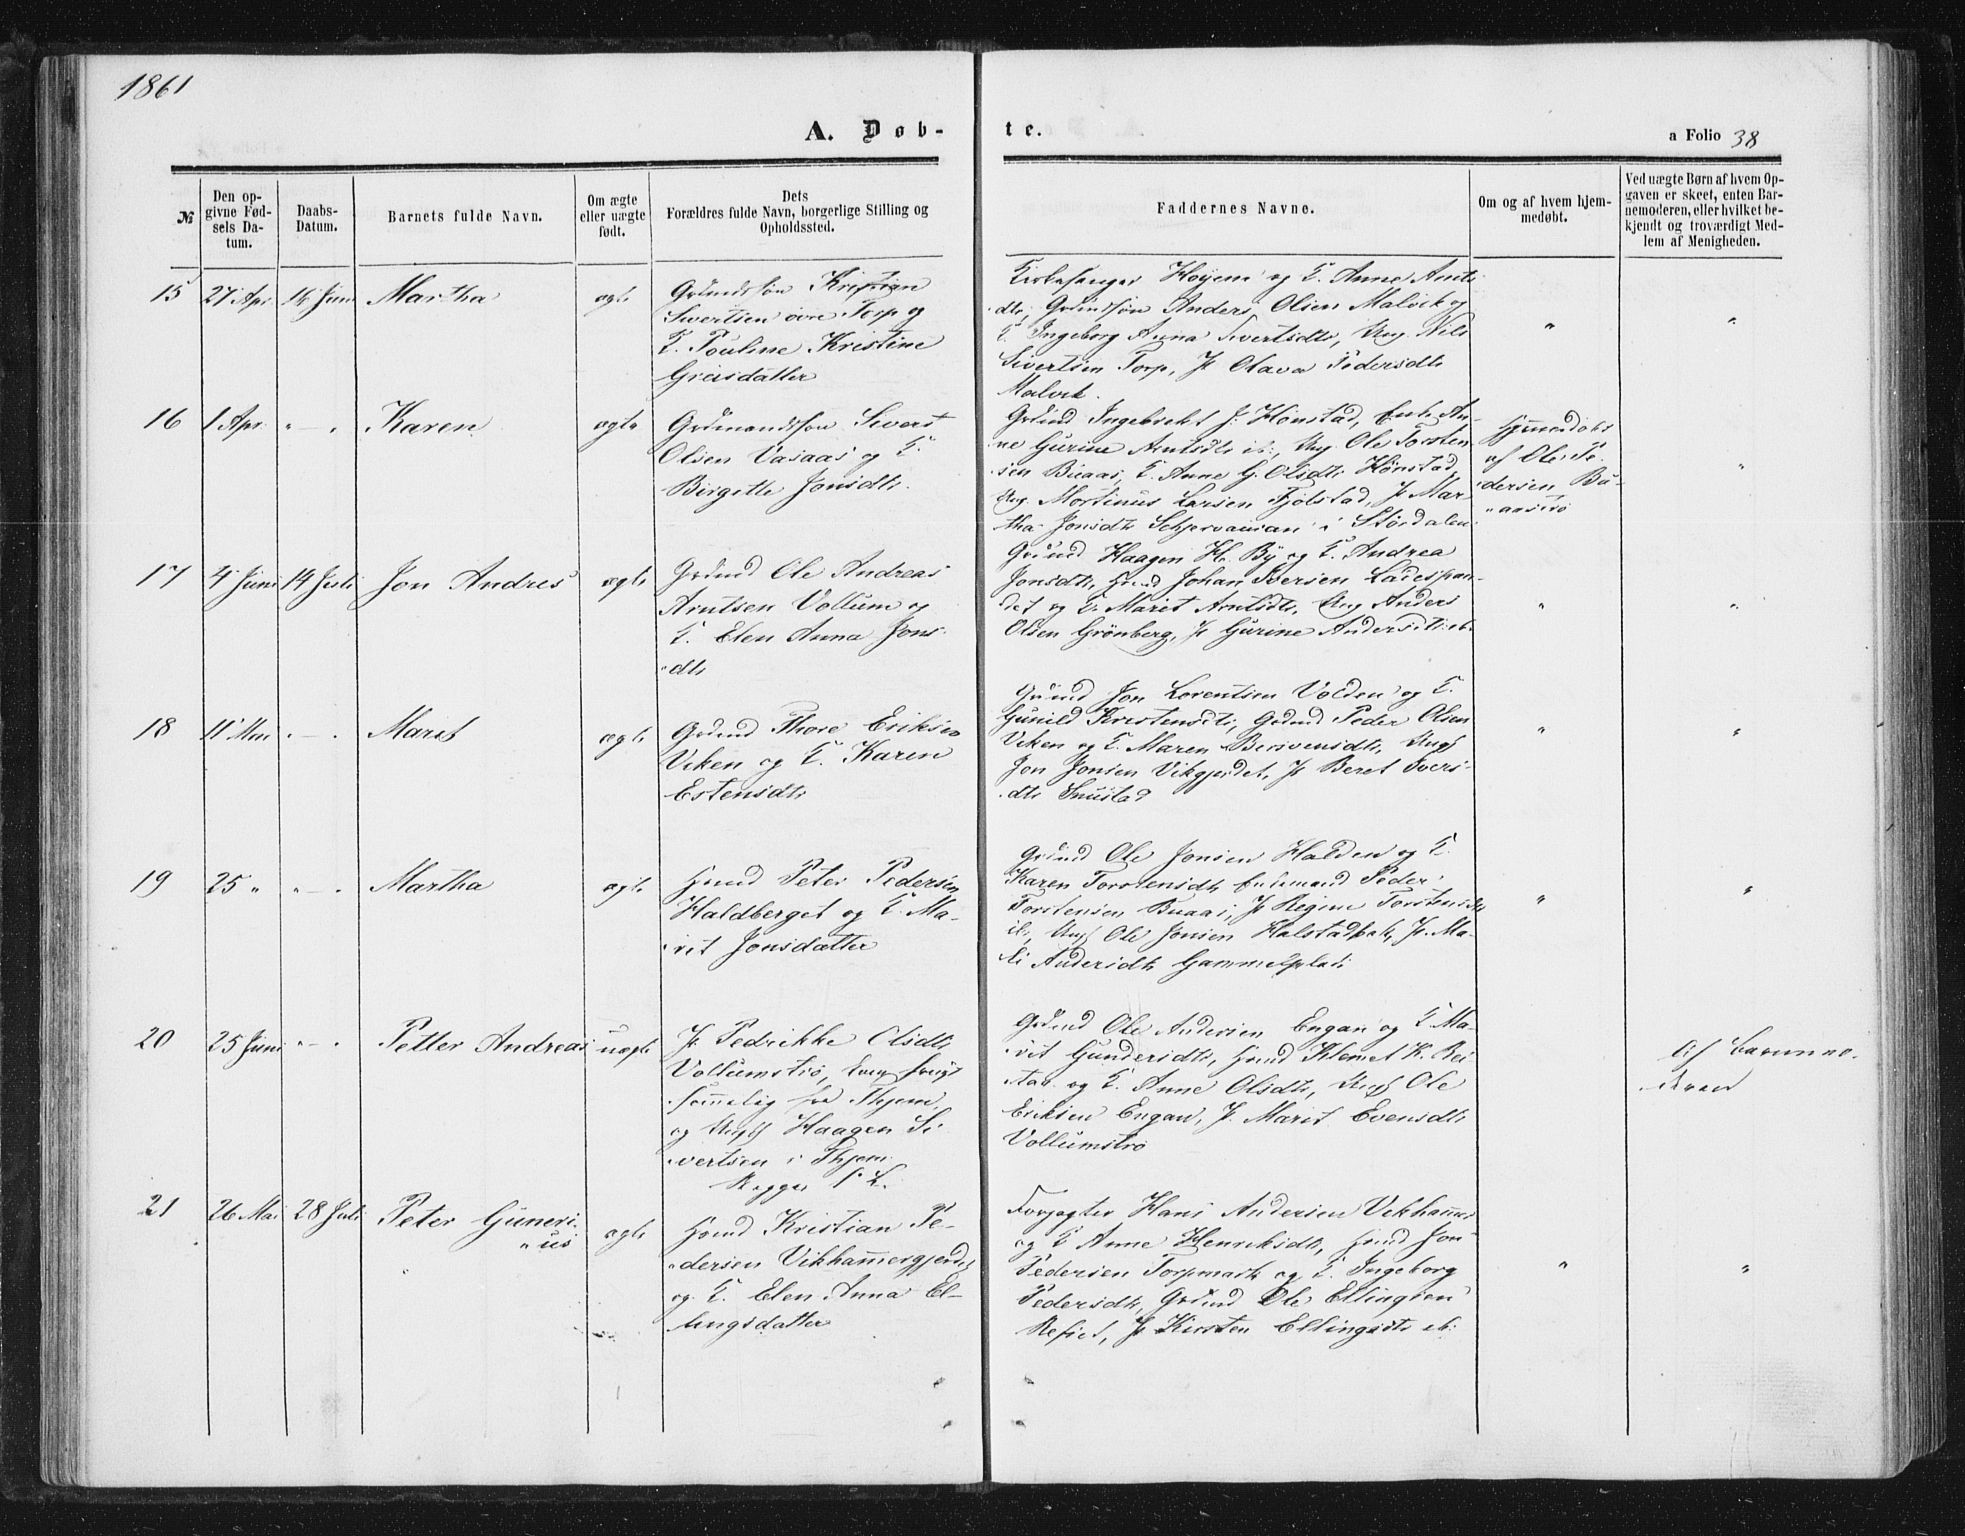 1861
A. Døb-
te.
a Folio 38
№
Den op-
givne Fød-
sels Da-
tum.
Daabs-
Datum.
Barnets fulde Navn.
Om ægte
eller uægte
født.
Dets
Forældres fulde Navn, borgerlige Stilling og
Opholdssted.
Faddernes Navne.
Om og af hvem hjem-
medøbt.
Ved uægte Børn af hvem Op-
gaven er skeet, enten Bar-
nemoderen, eller hvilket be-
kjendt og troværdigt Med-
lem af Menigheden.
15
27 Apr.
16 Juni
Martha
ægte
Kristian
Sivertsen øvre Torp og
K. Pouline Kristine
Greisdatter
Kirkesanger Høyem og K. Anne Arnts
dtr, Anders Olsen Malvik og
K. Ingeborg Anna Sivertsdtr, Ung. Nils
Sivertsen Torp, P. Olava Pedersdtr
Malvik.
"
"
16
1 Apr.
" — "
Karen
ægte
Sivert
Olsen Vasaas og K.
Birgitte Jonsdtr.
Grdmd Ingebrekt J. Hønstad, Enke An-
ne Gurine Arntsdtr ib:, Ung Ole Torsten
sen Buaas, K. Anne G. Olsdtr Hønstad,
Ung. Mortinus Larsen Fjølstad, P. Mar
tha Jonsdtr i Størdalen.
Hjemmedøbt
af Ole Pe-
dersen Bu-
aas
"
17
4 Juni
14 Juli
Jon Andres
ægte
Grdmd Ole Andreas
Arntsen Vollum og
K. Elen Anna Jons-
dtr
Grdmd Haagen H. By og K. Andrea
Jonsdtr, Hmd Johan Iversen
og K. Marit Arntsdtr, Ung Anders
Olsen Grønberg, P. Gurine Andersdtr ib.
"
"
18
11 Mai
" — "
Marit
ægte
Grdmd Thore Eriksen
Viken og K. Karen
Estensdtr
Grdmd Jon Lorentsen Volden og K.
Gunild Kristensdtr, Grdmd Peder Olsen
Viken og K. Maren Berivensdtr, Ungk
Jon Jonsen Vikgjerdet, P. Beret Ivers-
dtr Snustad
"
"
19
25 "
" — "
Martha
ægte
Hmd Peter Pedersen
Haldberget og K. Ma-
rit Jonsdatter
Grdmd Ole Jonsen Halden og K.
Karen Torstensdtr, Enkemand Peder
Torstensen Buaas, P. Regine Torstensdtr
ib, Ungk Ole Jonsen P. Ma-
li Andersdtr Gammelplads
"
"
20
25 Juni
" — "
Petter Andreas
uægte
P. Pedrikke Olsdtr
Vollumstrø,
fra Thjem,
og Ungk Haagen Si
vertsen i Thjem.
Begges 1' L.
Grdmd Ole Andersen Engan og K. Ma-
rit Gundersdtr, Hmd Klemet K. Rei
tan og K. Anne Olsdtr, Ungk Ole
Eriksen Engan, P. Marit Evensdtr
Vollumstrø
Af Barnemo-
deren
21
26 Mai
28 Juli
Peter Guneri-
us
ægte
Hmd Kristian Pe-
dersen Vikhamergjerdet
og K. Elen Anna El-
lingsdatter
Forpagter Hans Andersen Vikhamer
og K. Anne Henriksdtr, Hmd Jon
Pedersen Torpmark og K. Ingeborg
Pedersdtr, Grdmd Ole Ellingsen
P. Kirsten Ellingsdtr ib:
"
"